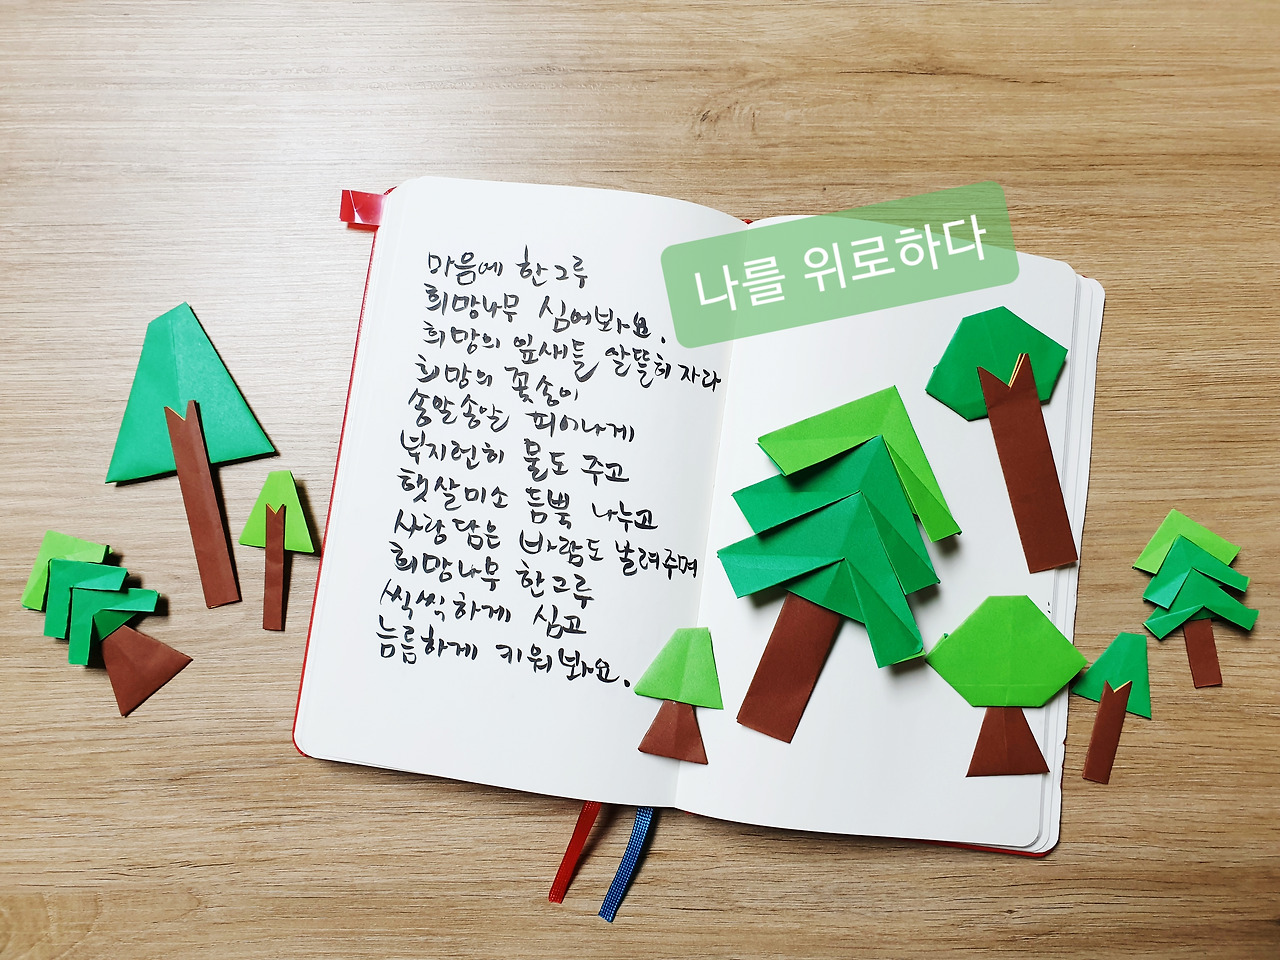 나를 위로하다
마음에 한그루
희망나무 심어봐요.
희망의 잎새들 알뜰히 자라
희망의 꽃송이
송알송알 피어나게
부지런히 물도 주고
햇살미소 듬뿍 나누고
사랑담은 바람도 날려주며
희망나무 한그루
씩씩하게 심고
늠름하게 키워봐요.